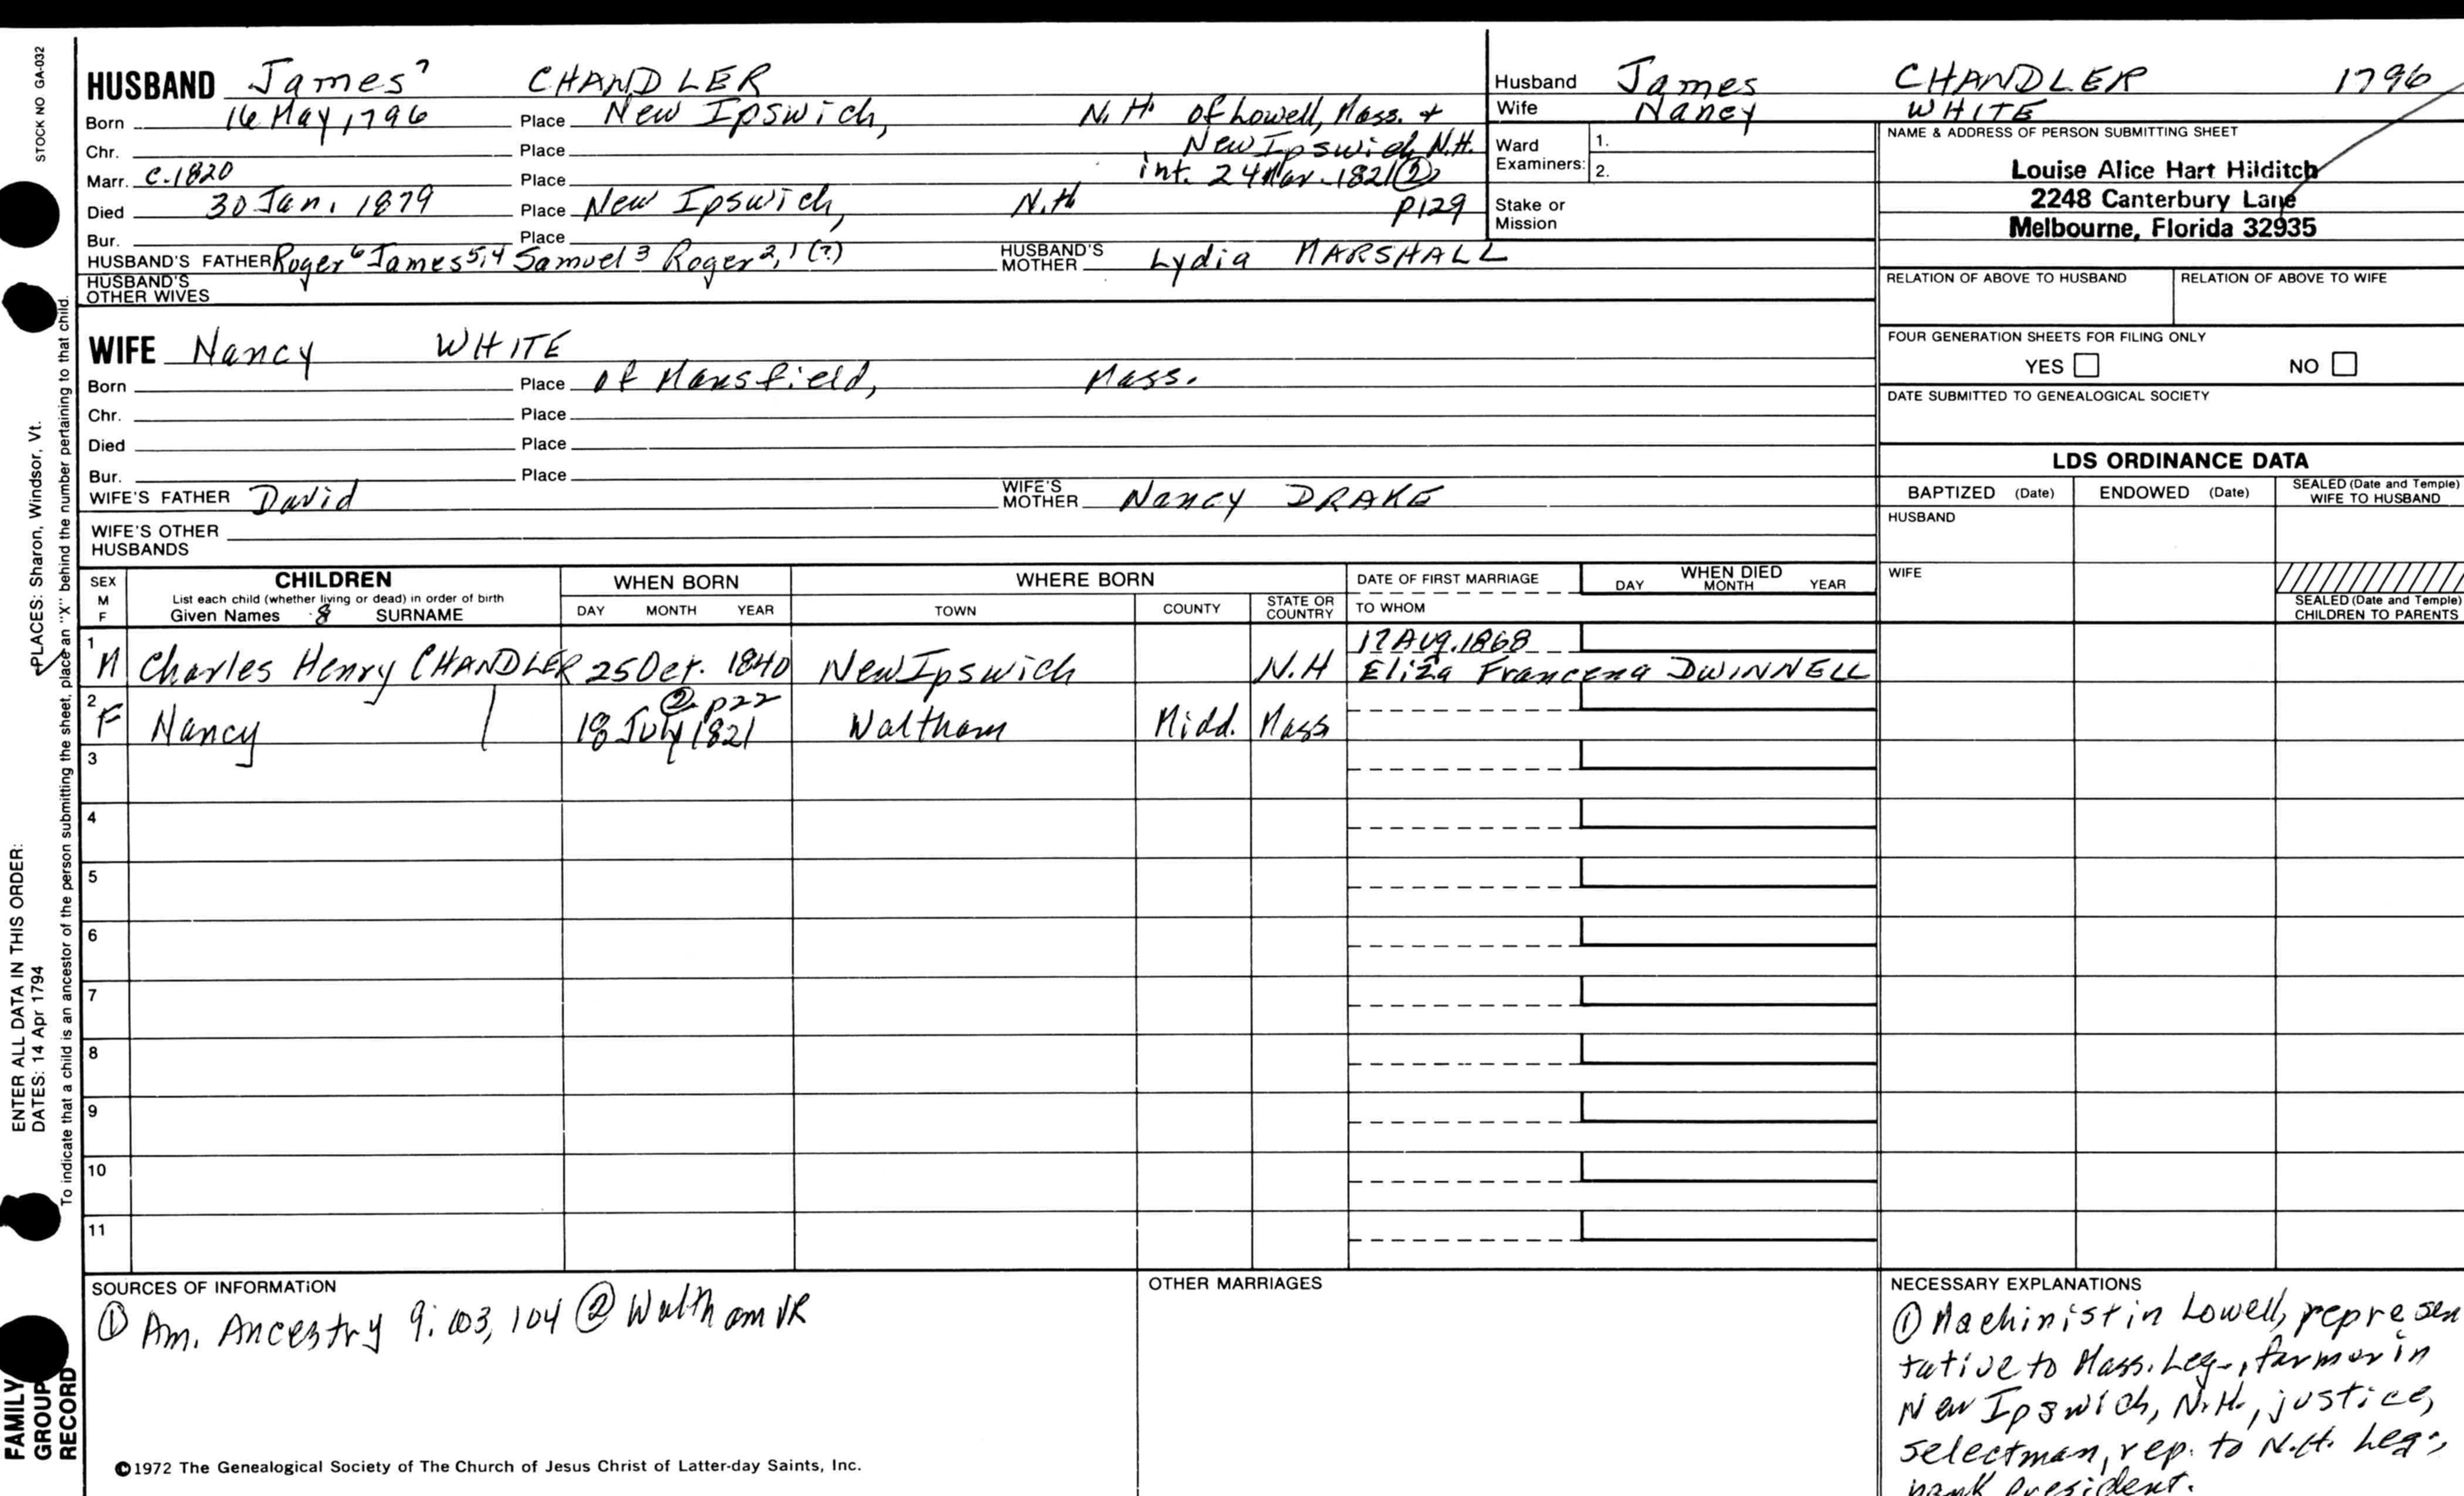 STOCK NO GA-032
HUSBAND James⁷ CHANDLER
Born 16 May 1796 Place New Ipswich, N.H. of Lowell, Mass. +
Chr. Place New Ipswich N.H.
Marr. c.1820 Place int. 24 Mar. 1821 ②
Died 30 Jan. 1879 Place New Ipswich, N.H p129
Bur. Place
HUSBAND'S FATHER Roger⁶ James⁵,⁴ Samuel³ Roger²,¹ (?) HUSBAND'S MOTHER Lydia MARSHALL
HUSBAND'S OTHER WIVES
WIFE Nancy WHITE
Born Place of Mansfield, Mass.
Chr. Place
Died Place
Bur. Place
WIFE'S FATHER David WIFE'S MOTHER Nancy DRAKE
WIFE'S OTHER HUSBANDS
Husband James CHANDLER 1796
Wife Nancy WHITE
Ward Examiners: 1.
2.
Stake or Mission
NAME & ADDRESS OF PERSON SUBMITTING SHEET
Louise Alice Hart Hilditch
2248 Canterbury Lane
Melbourne, Florida 32935
RELATION OF ABOVE TO HUSBAND RELATION OF ABOVE TO WIFE
FOUR GENERATION SHEETS FOR FILING ONLY
YES NO
DATE SUBMITTED TO GENEALOGICAL SOCIETY
LDS ORDINANCE DATA
BAPTIZED (Date) ENDOWED (Date) SEALED (Date and Temple) WIFE TO HUSBAND
HUSBAND
WIFE
SEALED (Date and Temple) CHILDREN TO PARENTS
SEX M F CHILDREN WHEN BORN WHERE BORN DATE OF FIRST MARRIAGE WHEN DIED
List each child (whether living or dead) in order of birth
Given Names 8 SURNAME DAY MONTH YEAR TOWN COUNTY STATE OR COUNTRY TO WHOM DAY MONTH YEAR
1 M Charles Henry CHANDLER 25 Oct. 1840 New Ipswich N.H 17 Aug. 1868
Eliza Francena DWINNELL
② p22
2 F Nancy 18 July 1821 Waltham Midd. Mass
3
4
5
6
7
8
9
10
11
SOURCES OF INFORMATION
① Am. Ancestry 9: 103, 104 ② Waltham VR
OTHER MARRIAGES
NECESSARY EXPLANATIONS
① Machinist in Lowell, represen
tative to Mass. Leg., farmer in
New Ipswich, N.H., justice,
selectman, rep. to N.H. Leg.,
bank president.
©1972 The Genealogical Society of The Church of Jesus Christ of Latter-day Saints, Inc.
FAMILY GROUP RECORD
ENTER ALL DATA IN THIS ORDER:
DATES: 14 Apr 1794 PLACES: Sharon, Windsor, Vt.
To indicate that a child is an ancestor of the person submitting the sheet, place an "X" behind the number pertaining to that child.